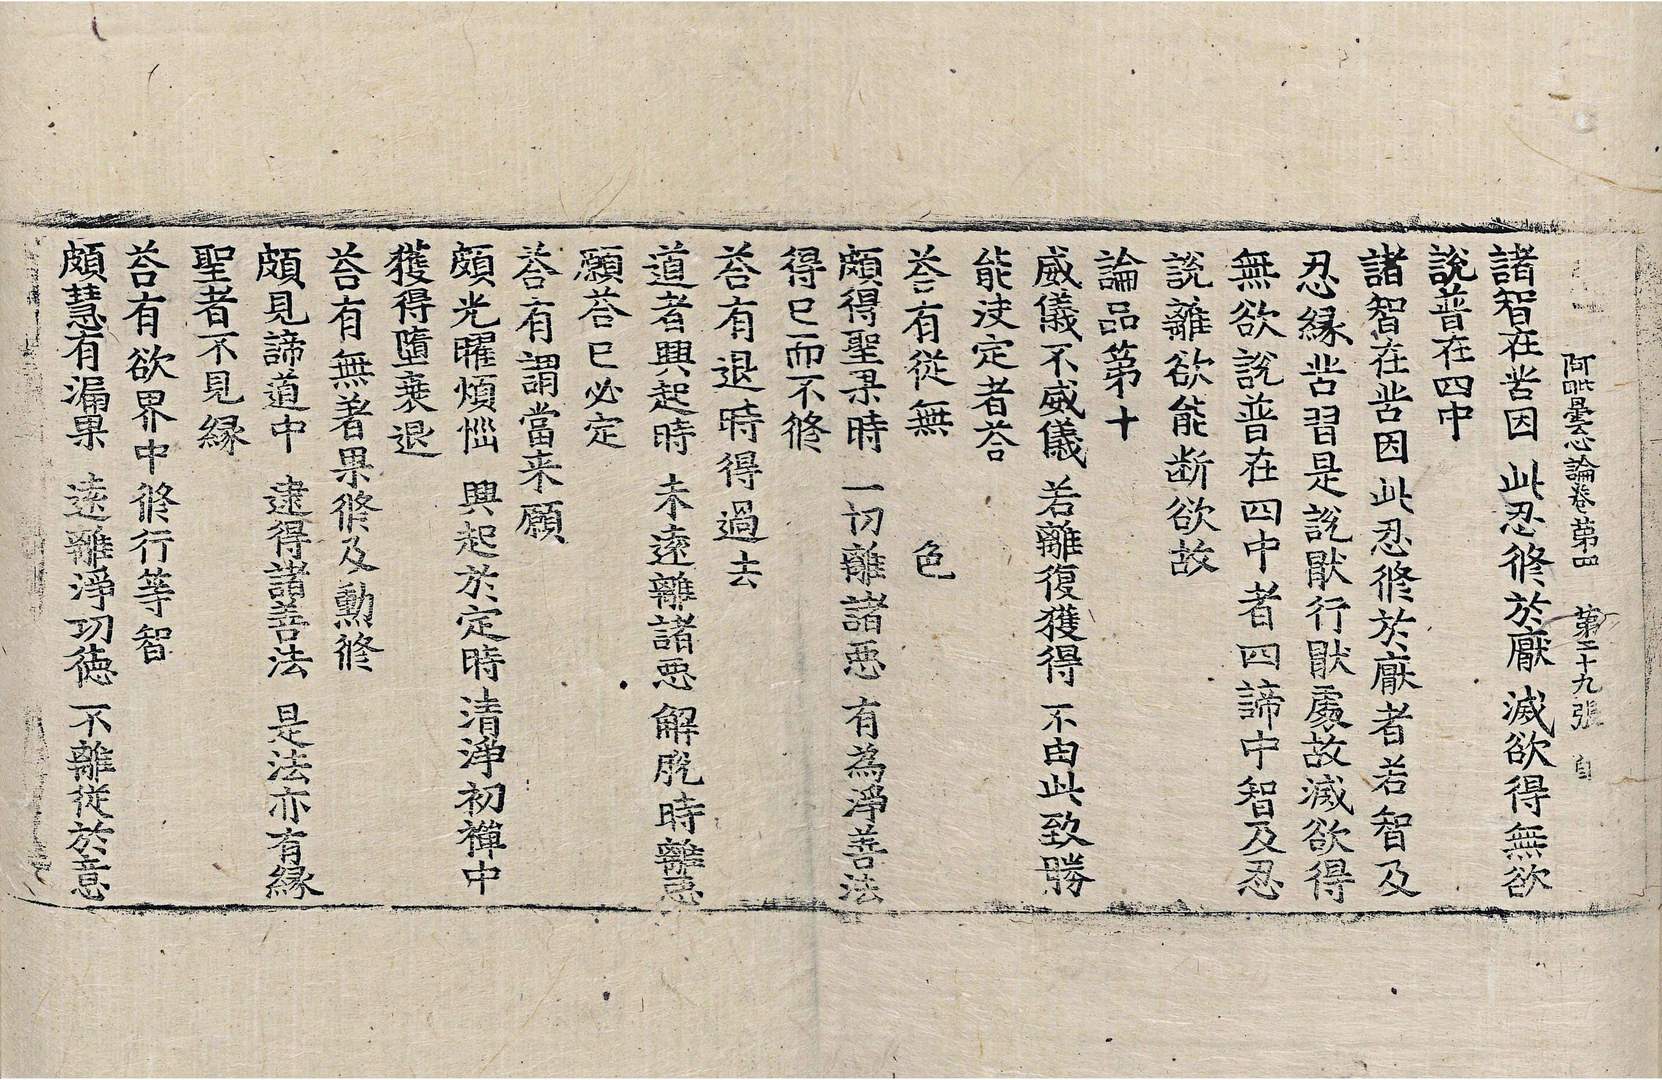 阿毗曇心論卷第四 第三十九張 自
諸智在苦因 此忍修於厭 滅欲得無欲
說普在四中
諸智在苦因此忍修於厭者若智及
忍緣苦習是說厭行厭處故滅欲得
無欲說普在四中者四諦中智及忍
說離欲能断欲故
論品第十
威儀不威儀 若離復獲得 不由此致勝
能決定者荅
荅有從無 色
頗得聖果時 一切離諸惡 有為淨善法
得已而不修
荅有退時得過去
道者興起時 未遠離諸惡 解脫時離惡
願荅已必定
荅有謂當来願
頗光曜煩惱 興起於定時 清淨初禪中
獲得墮衰退
荅有無著果修及勳修
頗見諦道中 逮得諸善法 是法亦有緣
聖者不見緣
荅有欲界中修行等智
頗慧有漏果 遠離淨功德 不離從於意